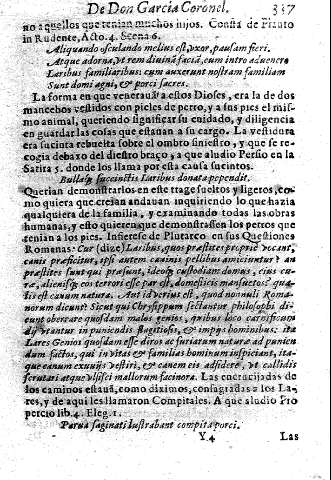 De Don Garcia Coronel. 337
no a quellos que tenian muchos hijos. Consta de Plauto
in Rudente, Acto. 4. Scena 6.
Aliquando osculando melius est, vxor, pausam fieri.
Atque adorna, vt rem diuina faciã, cum intro aduenero
Laribus familiaribus: cum auxerunt nostram familiam
Sunt domi agni, & porci sacres.
La forma en que venerauã a estos Dioses, era la de dos
mancebos vestidos con pieles de perro, y a sus pies el mis-
mo animal, queriendo significar su cuidado, y diligencia
en guardar las cosas que estauan a su cargo. La vestidura
era sucinta rebuelta sobre el ombro siniestro, y que se re-
cogia debaxo del diestro braço, a que aludio Persio en la
Satira 5. donde los llama por esta causa sucintos.
Bullaq; succinctis Laribus donata pependit.
Querian demonstrarlos en este trage sueltos y ligeros, co-
mo quiera que creian andauan inquiriendo lo que hazia
qualquiera de la familia, y examinando todas las obras
humanas, y esto quieren que demonstrassen los perros que
tenian a los pies. Infierese de Plutarco en sus Questiones
Romanas: Cur (dize) Laribus, quos præstites proprie vocant,
canis præficitur, ipsi autem caninis pellibus amiciuntur? an
præstites sunt qui præsunt, ideoq; custodiam domus, eius cu-
ra, alienisq; eos terrori esse par est, domesticis mansuetos? qua-
lis est canum natura. Aut id verius est, quod nonnulli Roma-
norum dicunt? Sicut qui Chrysippum sectantur philosophi di-
cunt oberrare quosdam malos genios, quibus loco carnificum
dij vtantur in puniendis flagitiosis, & impijs hominibus: ita
Lares Genios quosdam esse diros ac furiarum natura ad punien-
dum factos, qui in vitas & familias hominum inspiciant, ita-
que canum exuuijs vestiri, & canem eis adsidere, vt callidis
scrutari atque vlcisci mallorum facinora. Las encrucijadas de
los caminos estauã, como diximos, consagradas a los La-
res, y de aqui les llamaron Compitales. A que aludio Pro
percio lib. 4. Eleg. 1.
Parua saginati lustrabant compita porci.
Y 4 Las